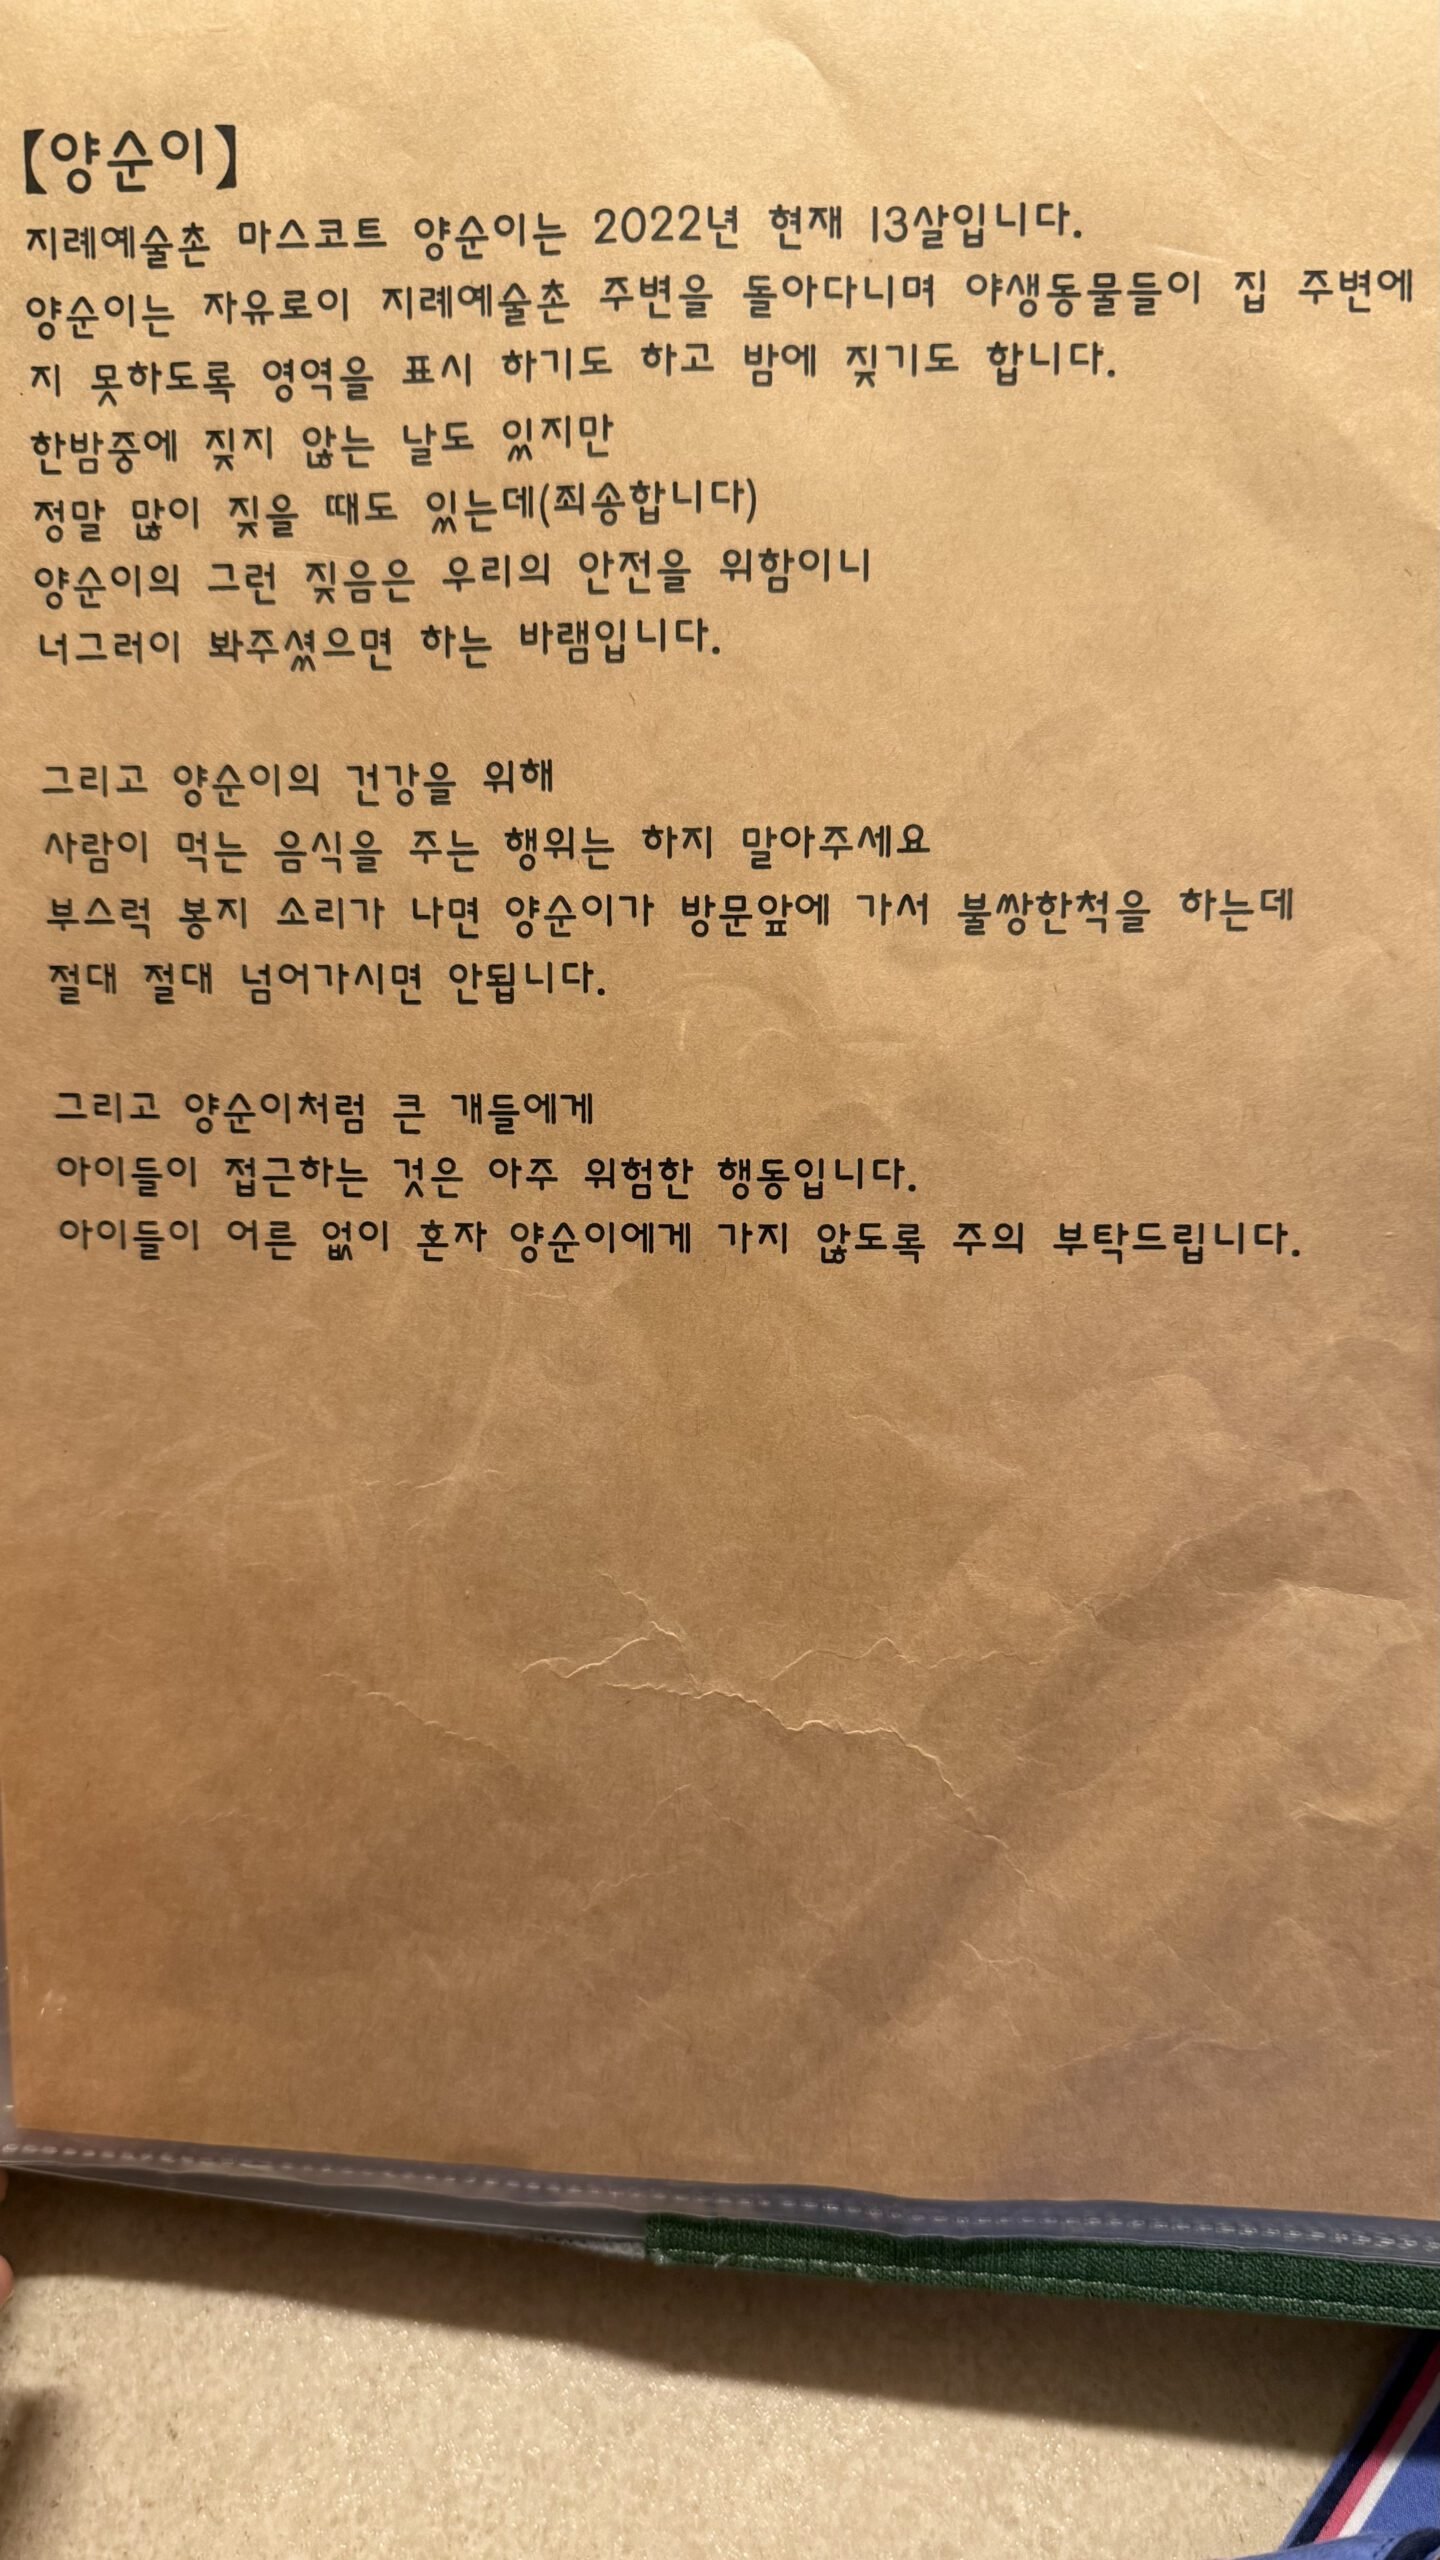 【양순이】
지례예술촌 마스코트 양순이는 2022년 현재 13살입니다.
양순이는 자유로이 지례예술촌 주변을 돌아다니며 야생동물들이 집 주변에
지 못하도록 영역을 표시 하기도 하고 밤에 짖기도 합니다.
한밤중에 짖지 않는 날도 있지만
정말 많이 짖을 때도 있는데(죄송합니다)
양순이의 그런 짖음은 우리의 안전을 위함이니
너그러이 봐주셨으면 하는 바램입니다.
그리고 양순이의 건강을 위해
사람이 먹는 음식을 주는 행위는 하지 말아주세요
부스럭 봉지 소리가 나면 양순이가 방문앞에 가서 불쌍한척을 하는데
절대 절대 넘어가시면 안됩니다.
그리고 양순이처럼 큰 개들에게
아이들이 접근하는 것은 아주 위험한 행동입니다.
아이들이 어른 없이 혼자 양순이에게 가지 않도록 주의 부탁드립니다.